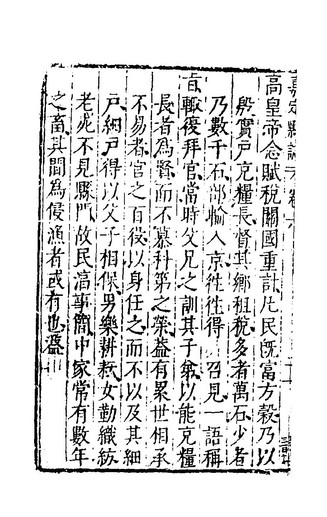 嘉定縣誌 卷六
高皇帝念賦稅關國重計凡民既富方穀乃以
殷實戶充糧長督其鄉租稅多者萬石少者
乃數千石部輸入京徃徃得 召見一語稱
旨輒復拜官當時父兄之訓其子弟以能充糧
長者為賢而不慕科第之榮葢有累世相承
不易者官之百役以身任之而不以及其細
戶細戶得以父子相保男樂耕耘女勤織紡
老死不見縣門故民淳事簡中家常有數年
之畜其間為侵漁者或有也葢